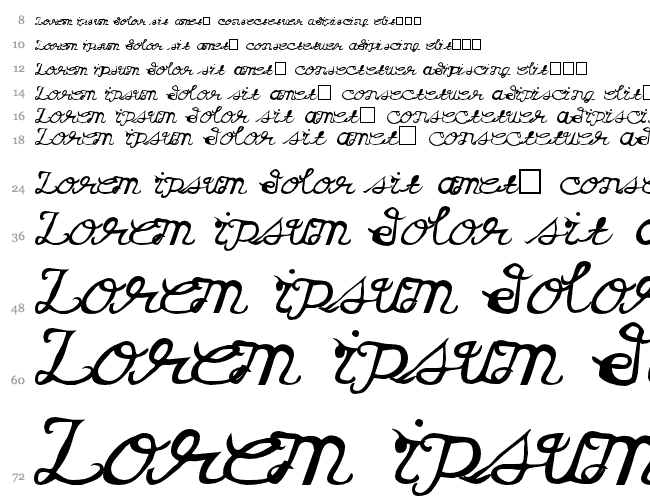 8 Lorem ipsum dolor sit amet□ consectetuer adipiscing elit□□□
10 Lorem ipsum dolor sit amet□ consectetuer adipiscing elit□□□
12 Lorem ipsum dolor sit amet□ consectetuer adipiscing elit□□□
14 Lorem ipsum dolor sit amet□ consectetuer adipiscing elit□
16 Lorem ipsum dolor sit amet□ consectetuer adipisci
18 Lorem ipsum dolor sit amet□ consectetuer ad
24 Lorem ipsum dolor sit amet□ conse
36 Lorem ipsum dolor sit a
48 Lorem ipsum dolor
60 Lorem ipsum d
72 Lorem ipsum